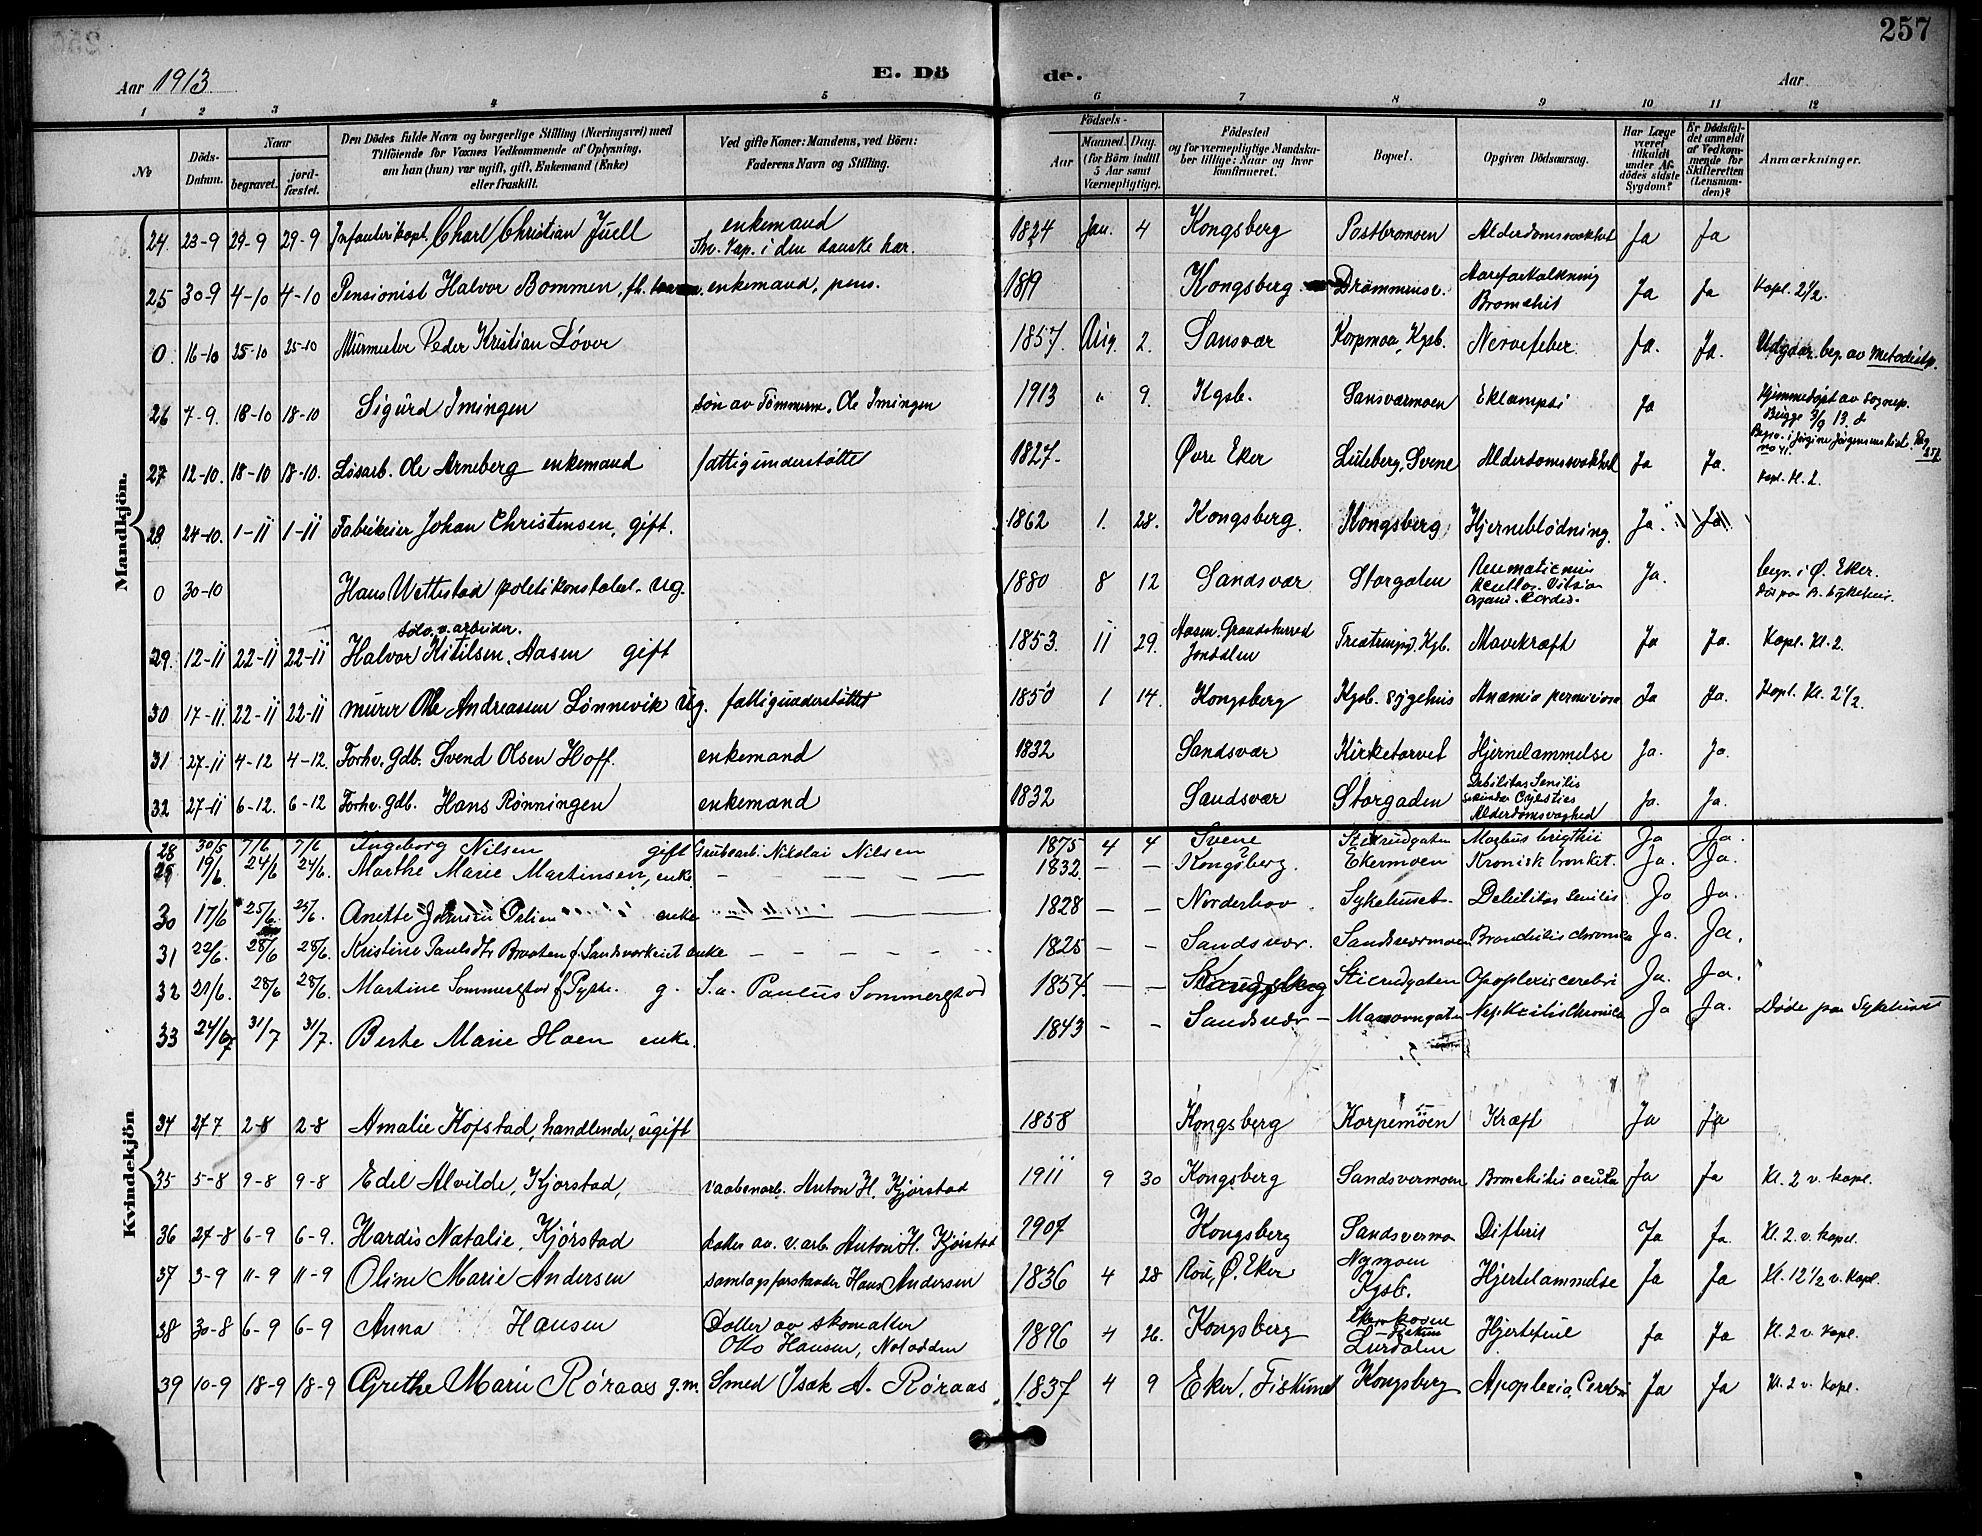 257
Aar 1913
E. Dö
de.
Aar
1 2 3 4 5 6 7 8 9 10 11 12
No
Döds-Datum.
Naar
begravet.
jord-fæstet.
Den Dödes fulde Navn og borgerlige Stilling (Næringsvei) med
Tilföiende for Voxnes Vedkommende af Oplysning,
om han (hun) var ugift, gift, Enkemand (Enke)
eller fraskilt.
Ved gifte Koner: Mandens, ved Börn:
Faderens Navn og Stilling.
Födsels-
Aar
Maaned. Dag.
(for Börn indtil
5 Aar samt
Værnepligtige).
Födested
og for værnepligtige Mandska-
ber tillige: Naar og hvor
konfirmeret.
Bopæl.
Opgiven Dödsaarsag.
Har Læge
været
tilkaldt
under Af-
dödes sidste
Sygdom?
Er Dödsfal-
det anmeldt
af Vedkom-
mende for
Skifteretten
(Lensman-
den)?
Anmærkninger.
Mandkjön.
24. 23-9 29-9 29-9 Infanterikapt. Charl Christian Juell enkemand 1824 Jan. 4 Kongsberg Postbromoen Alderdomssvakhet Ja Ja
i den danske hær.
25 30-9 4-10 4-10 Pensionist Halvor Bommen, enkemand, pens. 1819 Kongsberg Drammensv. Aareforkalkning Ja Ja Kapl. 2½.
Bronchit
0. 16-10 25-10 25-10 Murmester Peder Kristian Løver 1857. Aug. 2. Sansvær Korpmoa, Kgsb. Nervefeber. Ja. Ja. Udgaar. beg. av Metodistp.
26 7-9. 18-10 18-10 Sigurd Imingen søn av Tömmerm. Ole Imingen 1913 " 9. Kgsb. Sansværmoen Eklampsi Ja Hjemmedøpt av sognep.
Bugge 3/9 13.
27 12-10. 18-10 18-10. Løsarb. Ole Arneberg enkemand fattigunderstøttet 1827. Øvre Eker Luleberg, Svene Alderdomssvakhet Ja Ja.
Kapl. kl. 2.
28 24-10. 1-11 1-11 Fabrikeier Johan Christensen, gift. 1862 1. 28. Kongsberg. Kongsberg Hjerneblödning. Ja. Ja
0 30-10 Hans Wettestad politikonstabel. ug. 1880 8 12 Sandsvær Storgaten Ja. begr. i Ø. Eker.
Död paa B. sykehus.
sølv.v.arbeider.
29. 12-11 22-11 22-11 Halvor Kittilsen, Aasen gift 1853. 11 29. Aasen. Grandsherred Kgb. Mavekræft Ja Ja. Kapl. Kl. 2.
Jondalen
30 17-11. 22-11 22-11 murer Ole Andreassen Lønnevik ug. fattigunderstøttet 1850 1 14. Kongsberg Kgsb. sygehus Anæmia perniciosa Ja Ja. Kapl. Kl. 2½.
31 27-11 4-12 4-12. Forhv. gdb. Svend Olsen Hoff. enkemand 1832 Sandsvær Kirketorvet Hjernelammelse Ja. Ja.
32 27-11 6-12. 6-12 Forhv. gdb. Hans Rønningen enkemand 1832 Sandsvær Storgaden Debilitas Senilis Ja. Ja.
Alderdomsvaghed
Kvindekjön
28 30/5 7/6 7/6 Ingeborg Nilsen gift Grubearb. Nikolai Nilsen 1875 4 4 Svene Stierudgaten Morbus brigthii Ja Ja.
29 19/6. 24/6 24/6. Marthe Marie Martinsen, enke — 1832. — — Kongsberg. Ekermoen Kronisk bronkit. Ja. Ja.
30 17/6 25/6. 25/6. Anette enke 1828 — — Norderhov Sykehuset. Debilitas senilis Ja Ja.
31 22/6. 28/6 28/6. Kristine Braaten f. enke — 1825 — — Sandsvær. Sandsværmoen Bronchitis chronica Ja. Ja.
32 21/6. 28/6 28/6. Martine Sommerstad f. g. S.a. Paulus Sommerstad 1854. — — Kongsberg Stierudgaten Apoplexis cerebri Ja. Ja.
33 24/7 31/7 31/7. Berte Marie Hoen enke. 1843 — — Sandsvær — Nephritis chronica Ja Ja. Døde paa Sykehuset
34 27 7 2-8 2-8 Amalie Hofstad, handlende, ugift 1858 Kongsberg Korpemoen Kræft Ja Ja
35 5-8 9-8 9-8 Edel Alvilde, Kjørstad, vaabenarb. Anton H. Kjørstad 1911 9 30 Kongsberg Sandsvermoen Bronchitis acuta Ja Ja Kl. 2 v. kapel.
36 27-8 6-9 6-9. Hardis Natalie, Kjørstad datter av v.arb. Anton H. Kjørstad 1907 Kongsberg Sandsvermo Difterit Ja Ja. Kl. 2. v. kapel.
37 3-9 11-9 11-9 Oline Marie Andersen samlagsforstander Hans Andersen 1836 4 28 Ø. Eker Nymoen Hjertelammelse Ja Ja Kl. 12½ v. Kapl.
Kgsb.
38 30-8 6-9 6-9 Anna Hansen Datter av skomaker 1896 4 26. Kongsberg Hjertefeil Ja Ja Kl. 2 v. kapl.
Otto Hansen, Notodden Lurdalen
39 10-9 18-9 18-9 Grethe Marie Røraas g.m. Smed Isak A. Røraas 1837 4 9 Eker, Fiskum Kongsberg Apoplexia, Cerebri Ja Ja Kl. 2 v. Kapl.